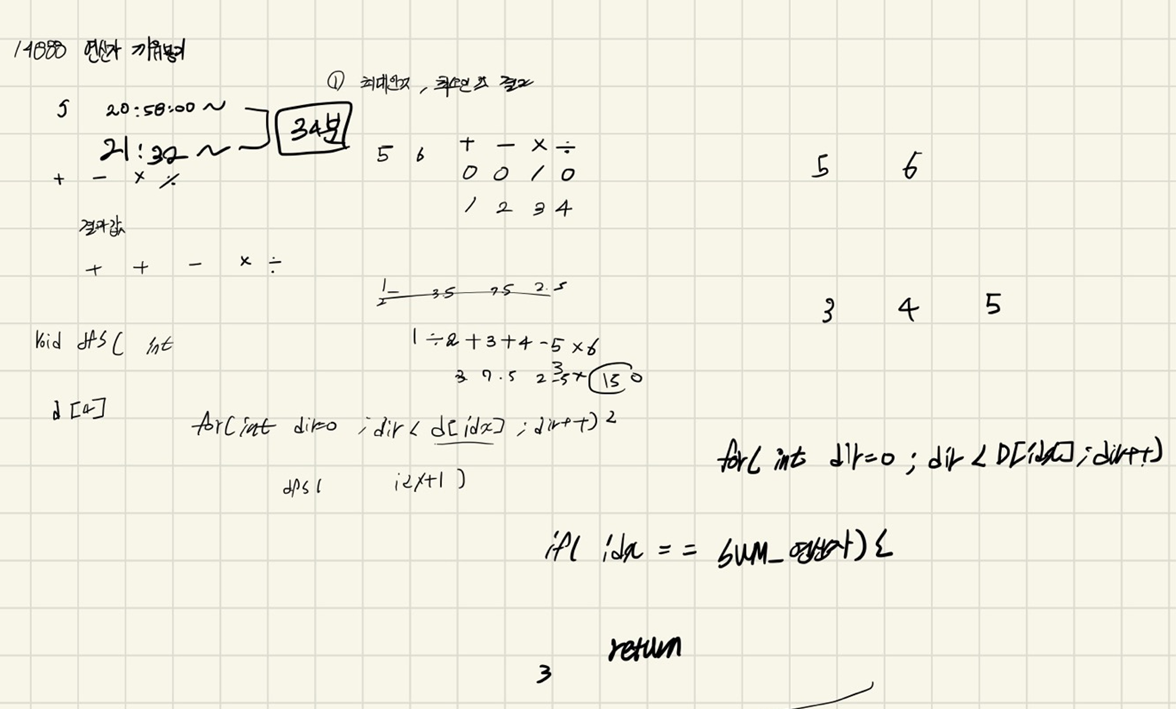 14888 연산자 끼워넣기
① 최대인지, 최소인지 결과
5 20:58:00 ~
21:32 ~
34분
+ - × ÷
5 6 + - × ÷
0 0 1 0
1 2 3 4
5 6
결과값
+ + - × ÷
3 4 5
1/2 3.5 7.5 2.5
1÷2+3+4-5×6
3 7.5 2
15 0
void dfs( int
d[4]
for(int dir=0 ; dir < d[idx] ; dir++) 2
dfs( idx+1 )
for( int dir=0 ; dir < D[idx] ; dir++)
if( idx == sum_연산자) {
return
3